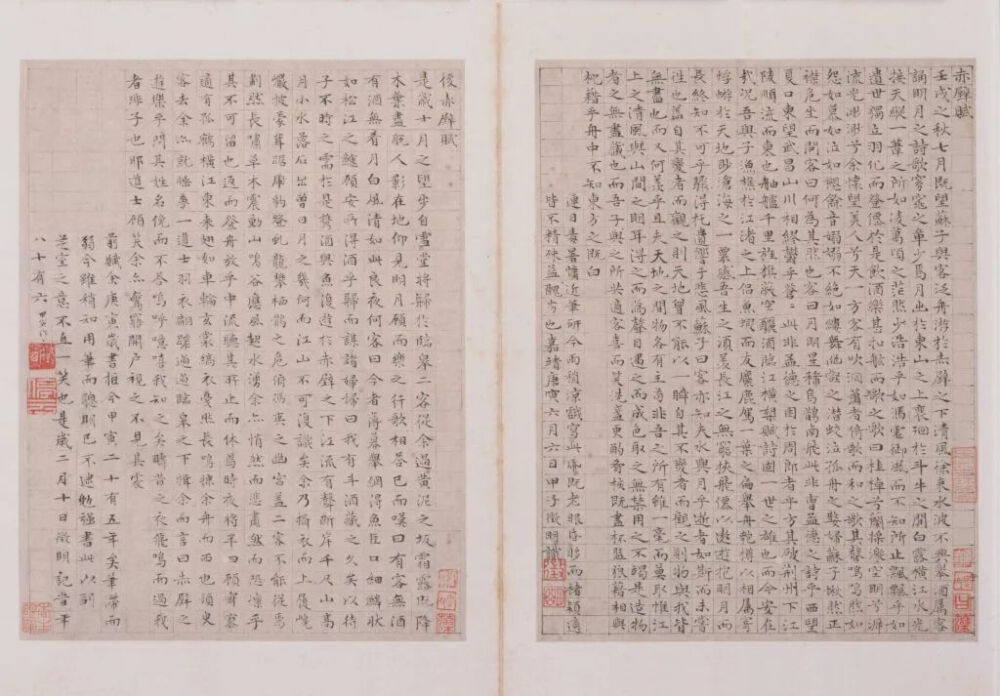 赤壁賦
壬戌之秋七月既望蘇子與客泛舟游於赤壁之下清風徐来水波不興舉酒屬客
誦明月之詩歌窈窕之章少焉月出於東山之上裵徊於斗牛之間白露橫江水光
接天縱一葦之所如凌萬頃之茫然浩浩乎如馮虛御風而不知所止飄飄乎如
遺世獨立羽化而登僊於是飲酒樂甚扣舷而歌之歌曰桂棹兮蘭槳擊空明兮泝
流光渺渺兮余懷望美人兮天一方客有吹洞簫者倚歌而和之其聲嗚嗚然如
怨如慕如泣如愬餘音嫋嫋不絕如縷舞幽壑之潛蛟泣孤舟之嫠婦蘇子愀然正
襟危坐而問客曰何為其然也客曰月明星稀烏鵲南飛此非曹孟德之詩乎西望
夏口東望武昌山川相繆鬱乎蒼蒼此非孟德之困於周郎者乎方其破荊州下江
陵順流而東也舳艫千里旌旗蔽空釃酒臨江橫槊賦詩固一世之雄也而今安在
哉况吾與子漁樵於江渚之上侶魚蝦而友麋鹿駕一葉之扁舟舉匏樽以相屬寄
蜉蝣於天地眇滄海之一粟哀吾生之須臾羨長江之無窮挾飛僊以遨遊抱明月而
長終知不可乎驟得托遺響于悲風蘇子曰客亦知夫水與月乎逝者如斯而未嘗
往也蓋自其變者而觀之則天地曾不能以一瞬自其不變者而觀之則物與我皆
無盡也而又何羨乎且夫天地之間物各有主苟非吾之所有雖一毫而莫取惟江
上之清風與山間之明月耳得之而為聲目遇之而成色取之無禁用之不竭是造物
者之無盡藏也而吾子與之所共適客喜而笑洗盞更酌肴核既盡杯盤狼藉相與
枕藉乎舟中不知東方之既白
連日毒暑慵近筆研今雨稍涼試寫此賦既老眼眵昏而楮穎適
皆不精殊益醜劣也嘉靖庚寅六月六日甲子徵明識
後赤壁賦
是歲十月之望步自雪堂將歸於臨皋二客從余過黃泥之坂霜露既降
木葉盡脫人影在地仰見明月顧而樂之行歌相答已而嘆曰有客無酒
有酒無肴月白風清如此良夜何客曰今者薄莫舉網得魚巨口細鱗狀
如松江之鱸顧安所得酒乎歸而謀諸婦婦曰我有斗酒藏之久矣以待
子不時之需於是携酒與魚復遊於赤壁之下江流有聲斷岸千尺山高
月小水落石出曾日月之幾何而江山不可復識矣余乃攝衣而上履巉
巖披蒙茸踞虎豹登虬龍攀栖鶻之危巢俯馮夷之幽宮蓋二客不能從焉
劃然長嘯草木震動山鳴谷應風起水湧余亦悄然而悲肅然而恐凛乎
其不可留也返而登舟放乎中流聽其所止而休焉時夜將半四顧寂寥
適有孤鶴橫江東来翅如車輪玄裳縞衣戛然長鳴掠余舟而西也須臾
客去余亦就睡夢一道士羽衣翩躚過臨皋之下揖余而言曰赤壁之
遊樂乎問其姓名俛而不答嗚呼噫嘻我知之矣疇昔之夜飛鳴而過我
者非子也耶道士顧笑余亦驚寤開戶視之不見其處
前賦余庚寅歲書抵今甲寅二十有五年矣筆滯而
弱今雖稍知用筆而聰明已不逮勉强書此以副
芝室之意不直一笑也是歲二月十日徵明記當年
八十有六